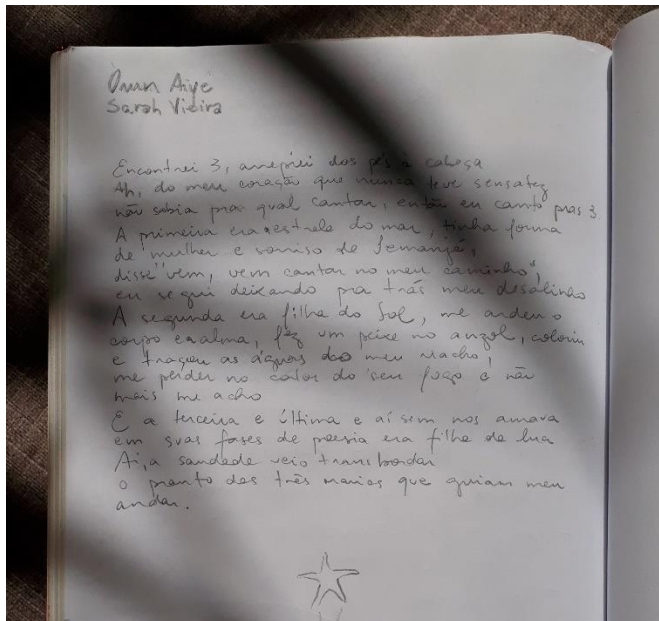 Omn Aiye
Sarah Vieira
Encontrei 3, arrepiei dos pés à cabeça
Ah, do meu coração que nunca teve sensatez
não sabia pra qual cantar, então eu canto pras 3
A primeira era estrela do mar, tinha forma
de mulher e sorriso de Iemanjá,
disse "vem, vem cantar no meu caminho",
eu segui deixando pra trás meu desalinho
A segunda era filha do Sol, me ardeu o
corpo e alma, fez um peixe no anzol, coloriu
e tragou as águas do meu riacho,
me perder no calor do seu fogo e não
mais me acho
E a terceira e última e aí sem nos amava
em suas fases de poesia era filha da lua
Ai, a saudade veio transbordar
o pranto das três marias que guiam meu
andar.